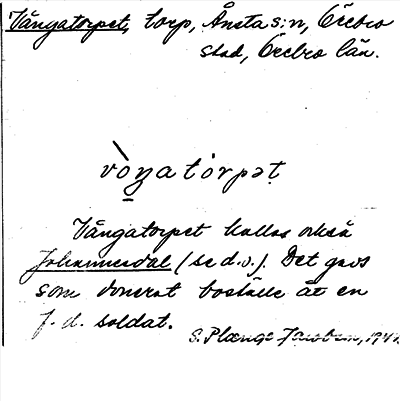 Vångatorpet, torp, Ånsta s:n, Örebro
stad, Örebro län.
vòŋatórpət
Vångatorpet kallas också
Johannesdal (se d.o.). Det gavs
som donerat boställe åt en
f. d. soldat.
S. Plænge Jacobson, 194